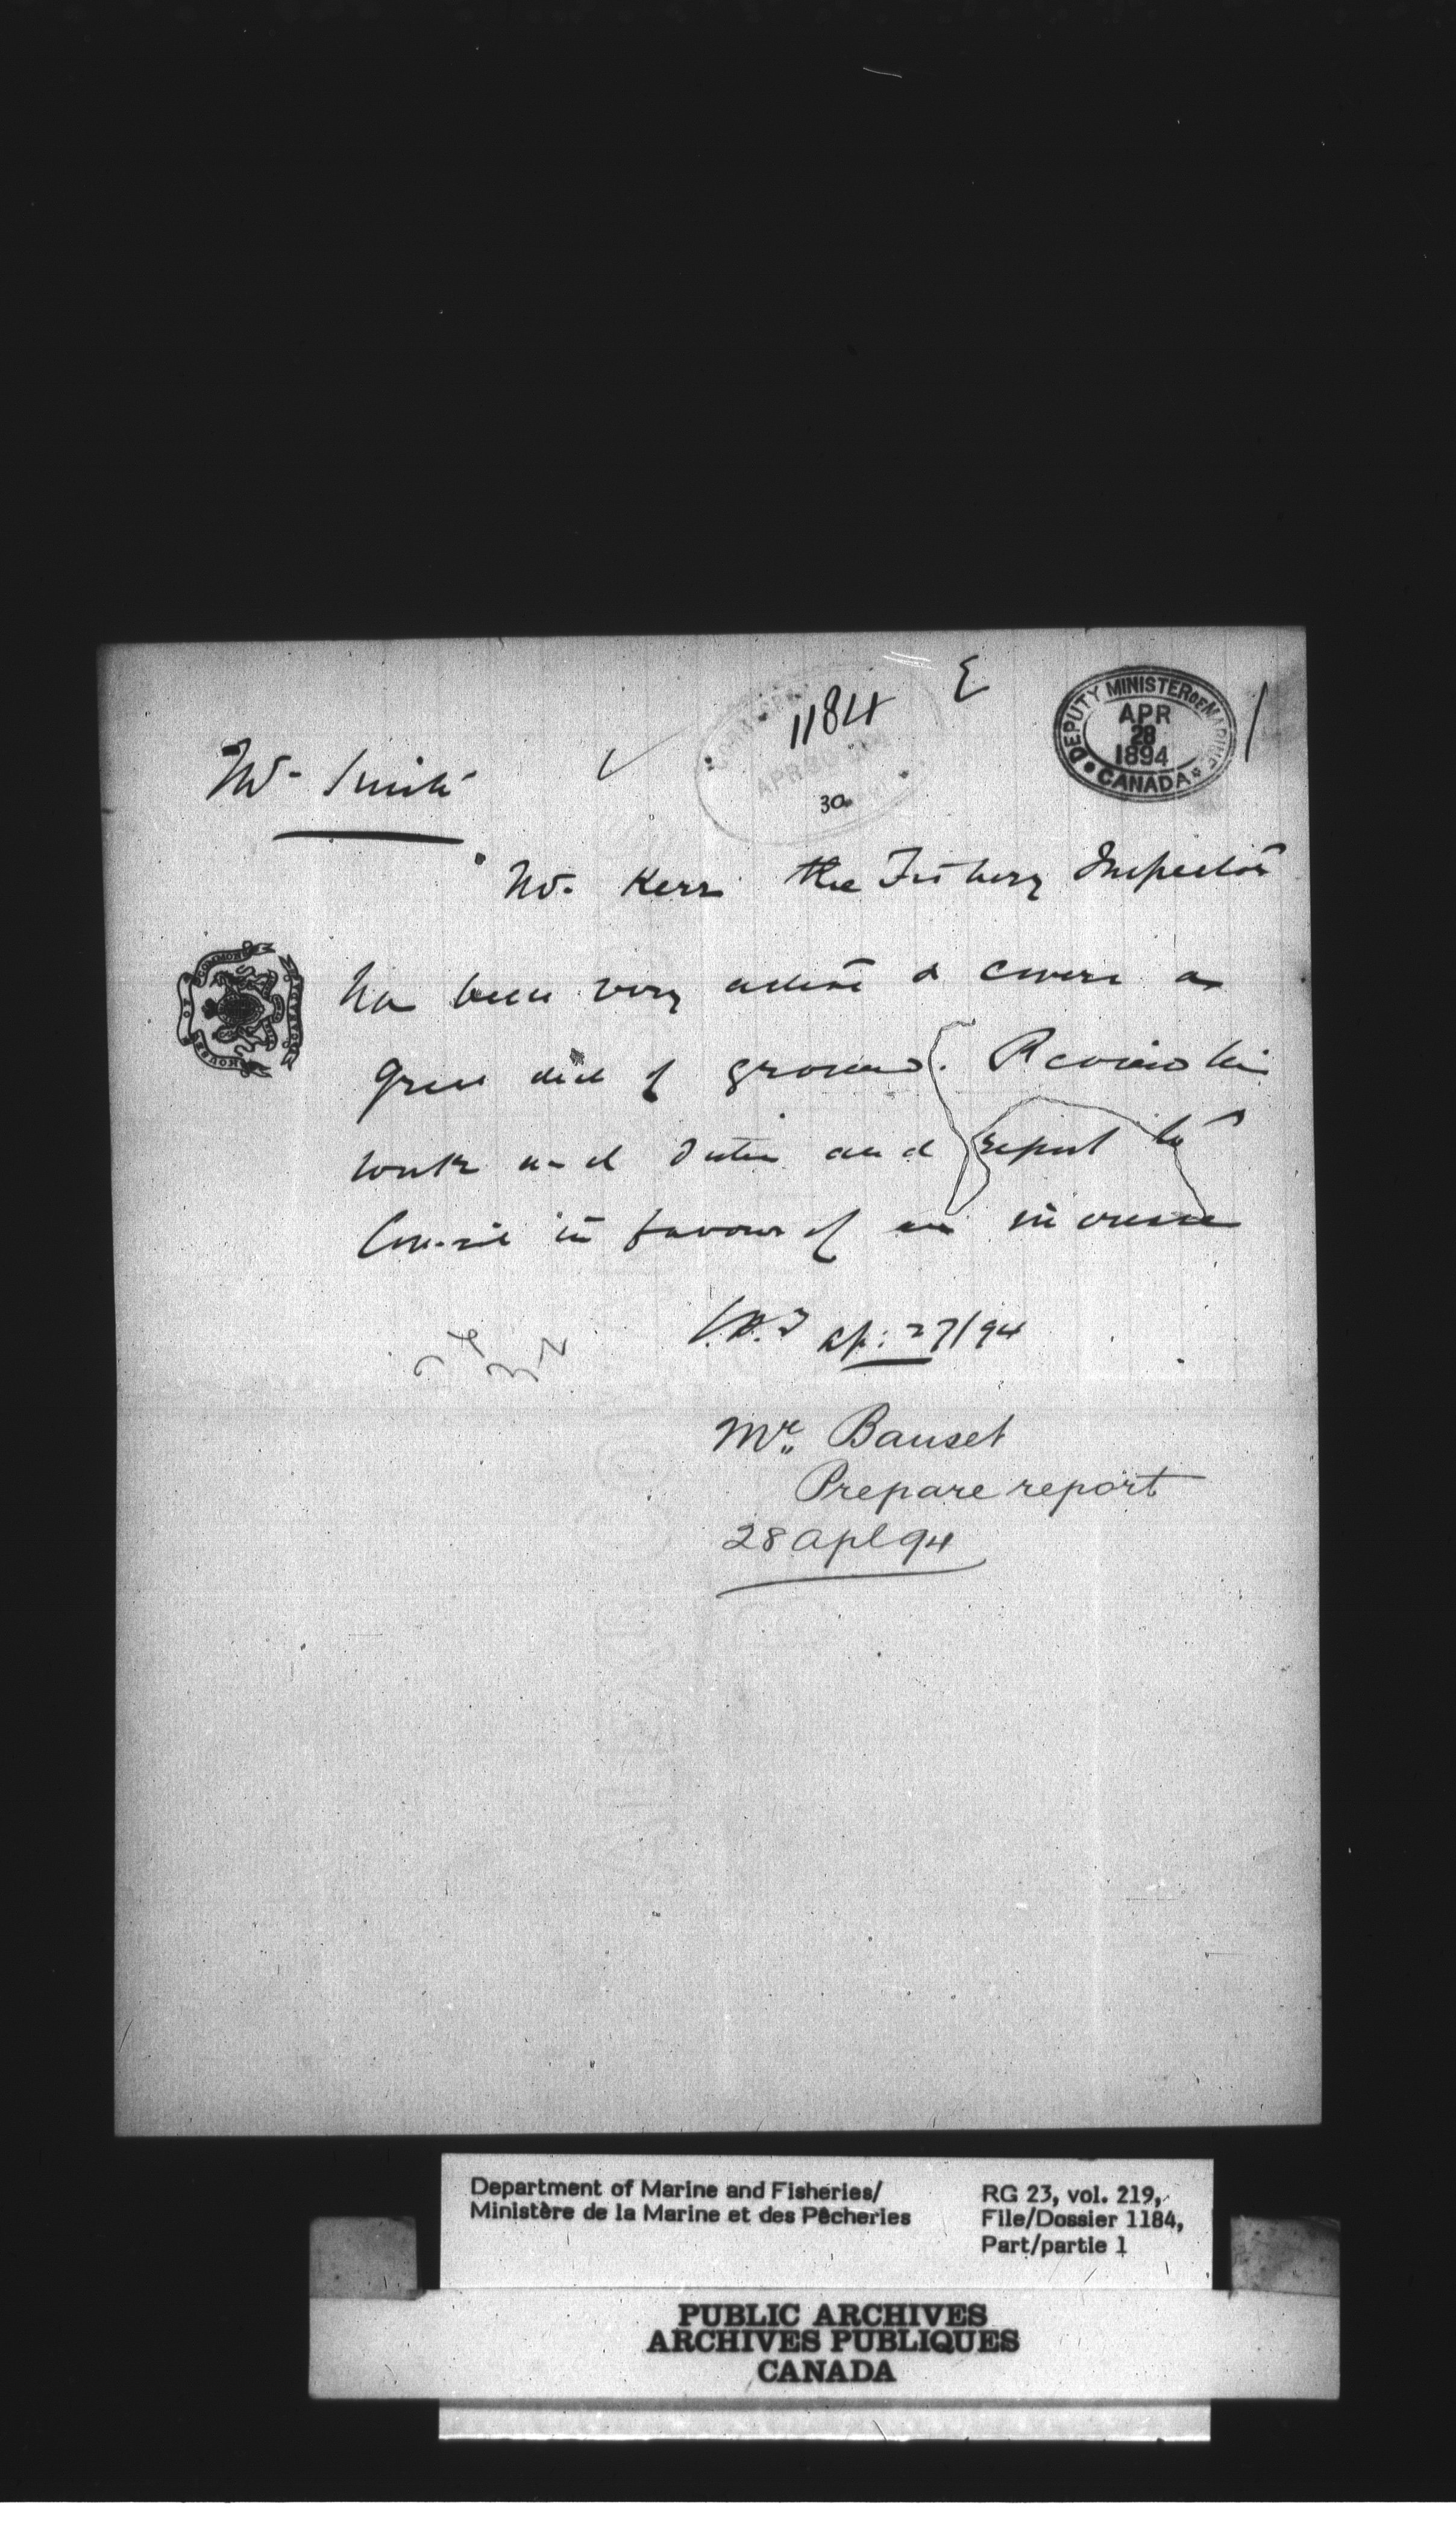 1184 E
DEPUTY MINISTER OF MARINE
APR
28
1894
CANADA
APR 30
30
Mr Smith
Mr. Kerr the Fishery Inspector
has been very active & covers a
great deal of ground. Review his
work and duties and report to
Council in favour of an increase
C.H.T Ap: 27/94
Mr. Bauset
Prepare report
28 Apl 94
HOUSE OF COMMONS
CANADA
Department of Marine and Fisheries/
Ministère de la Marine et des Pêcheries
RG 23, vol. 219,
File/Dossier 1184,
Part/partie 1
PUBLIC ARCHIVES
ARCHIVES PUBLIQUES
CANADA